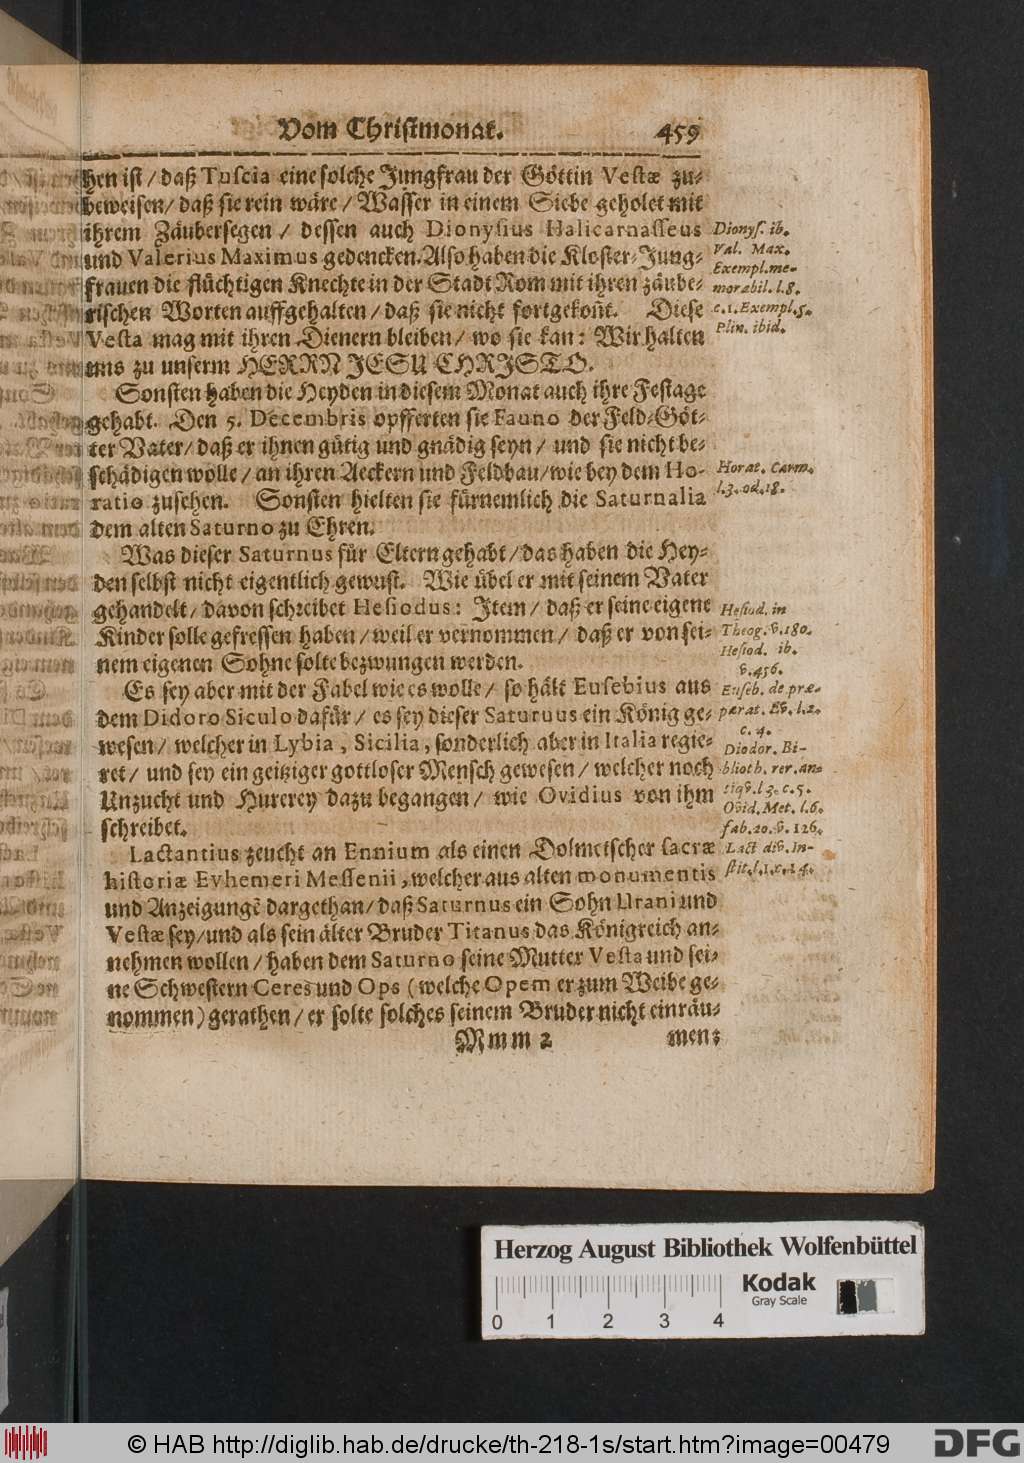 Vom Christmonat. 459
hen ist / daß Tuscia eine solche Jungfrau der Göttin Vestæ zu-
beweisen / daß sie rein wäre / Wasser in einem Siebe geholet mit
ihrem Zäubersegen / dessen auch Dionysius Halicarnasseus
und Valerius Maximus gedencken. Also haben die Kloster-Jung-
frauen die flüchtigen Knechte in der Stadt Rom mit ihren zäube-
rischen Worten auffgehalten / daß sie nicht fortgekoñt. Diese
Vesta mag mit ihren Dienern bleiben / wo sie kan: Wir halten
uns zu unserm HERRN JESU CHRISTO.
Sonsten haben die Heyden in diesem Monat auch ihre Festage
gehabt. Den 5. Decembris opfferten sie Fauno der Feld-Göt-
ter Vater / daß er ihnen gütig und gnädig seyn / und sie nicht be-
schädigen wolle / an ihren Aeckern und Feldbau / wie bey dem Ho-
ratio zusehen. Sonsten hielten sie fürnemlich die Saturnalia
dem alten Saturno zu Ehren.
Was dieser Saturnus für Eltern gehabt / das haben die Hey-
den selbst nicht eigentlich gewust. Wie übel er mit seinem Vater
gehandelt / davon schreibet Hesiodus: Item / daß er seine eigene
Kinder solle gefressen haben / weil er vernommen / daß er von sei-
nem eigenen Sohne solte bezwungen werden.
Es sey aber mit der Fabel wie es wolle / so hält Eusebius aus
dem Didoro Siculo dafür / es sey dieser Saturuus ein König ge-
wesen / welcher in Lybia, Sicilia, sonderlich aber in Italia regie-
ret / und sey ein geitziger gottloser Mensch gewesen / welcher noch
Unzucht und Hurerey dazu begangen / wie Ovidius von ihm
schreibet.
Lactantius zeucht an Ennium als einen Dolmetscher sacræ
historiæ Evhemeri Messenii, welcher aus alten monumentis
und Anzeigungẽ dargethan / daß Saturnus ein Sohn Urani und
Vestæ sey / und als sein älter Bruder Titanus das Königreich an-
nehmen wollen / haben dem Saturno seine Mutter Vesta und sei-
ne Schwestern Ceres und Ops (welche Opem er zum Weibe ge-
nommen) gerathen / er solte solches seinem Bruder nicht einräu-
Mmm 2 men:
Dionys. ib.
Val. Max.
Exempl. me-
morabil. l. 8.
c. 1. Exempl. 5.
Plin. ibid.
Horat. Carm.
l. 3. od. 18.
Hesiod. in
Theog. v. 180.
Hesiod. ib.
v. 456.
Euseb. de præ-
parat. Ev. l. 2.
c. 4.
Diodor. Bi-
blioth. rer. an-
tiqv. l. 3. c. 5.
Ovid. Met. l. 6.
fab. 20. v. 126.
Lact div. In-
stit. l. 1. c. 14.
Herzog August Bibliothek Wolfenbüttel
Kodak
Gray Scale
0 1 2 3 4
© HAB http://diglib.hab.de/drucke/th-218-1s/start.htm?image=00479
DFG